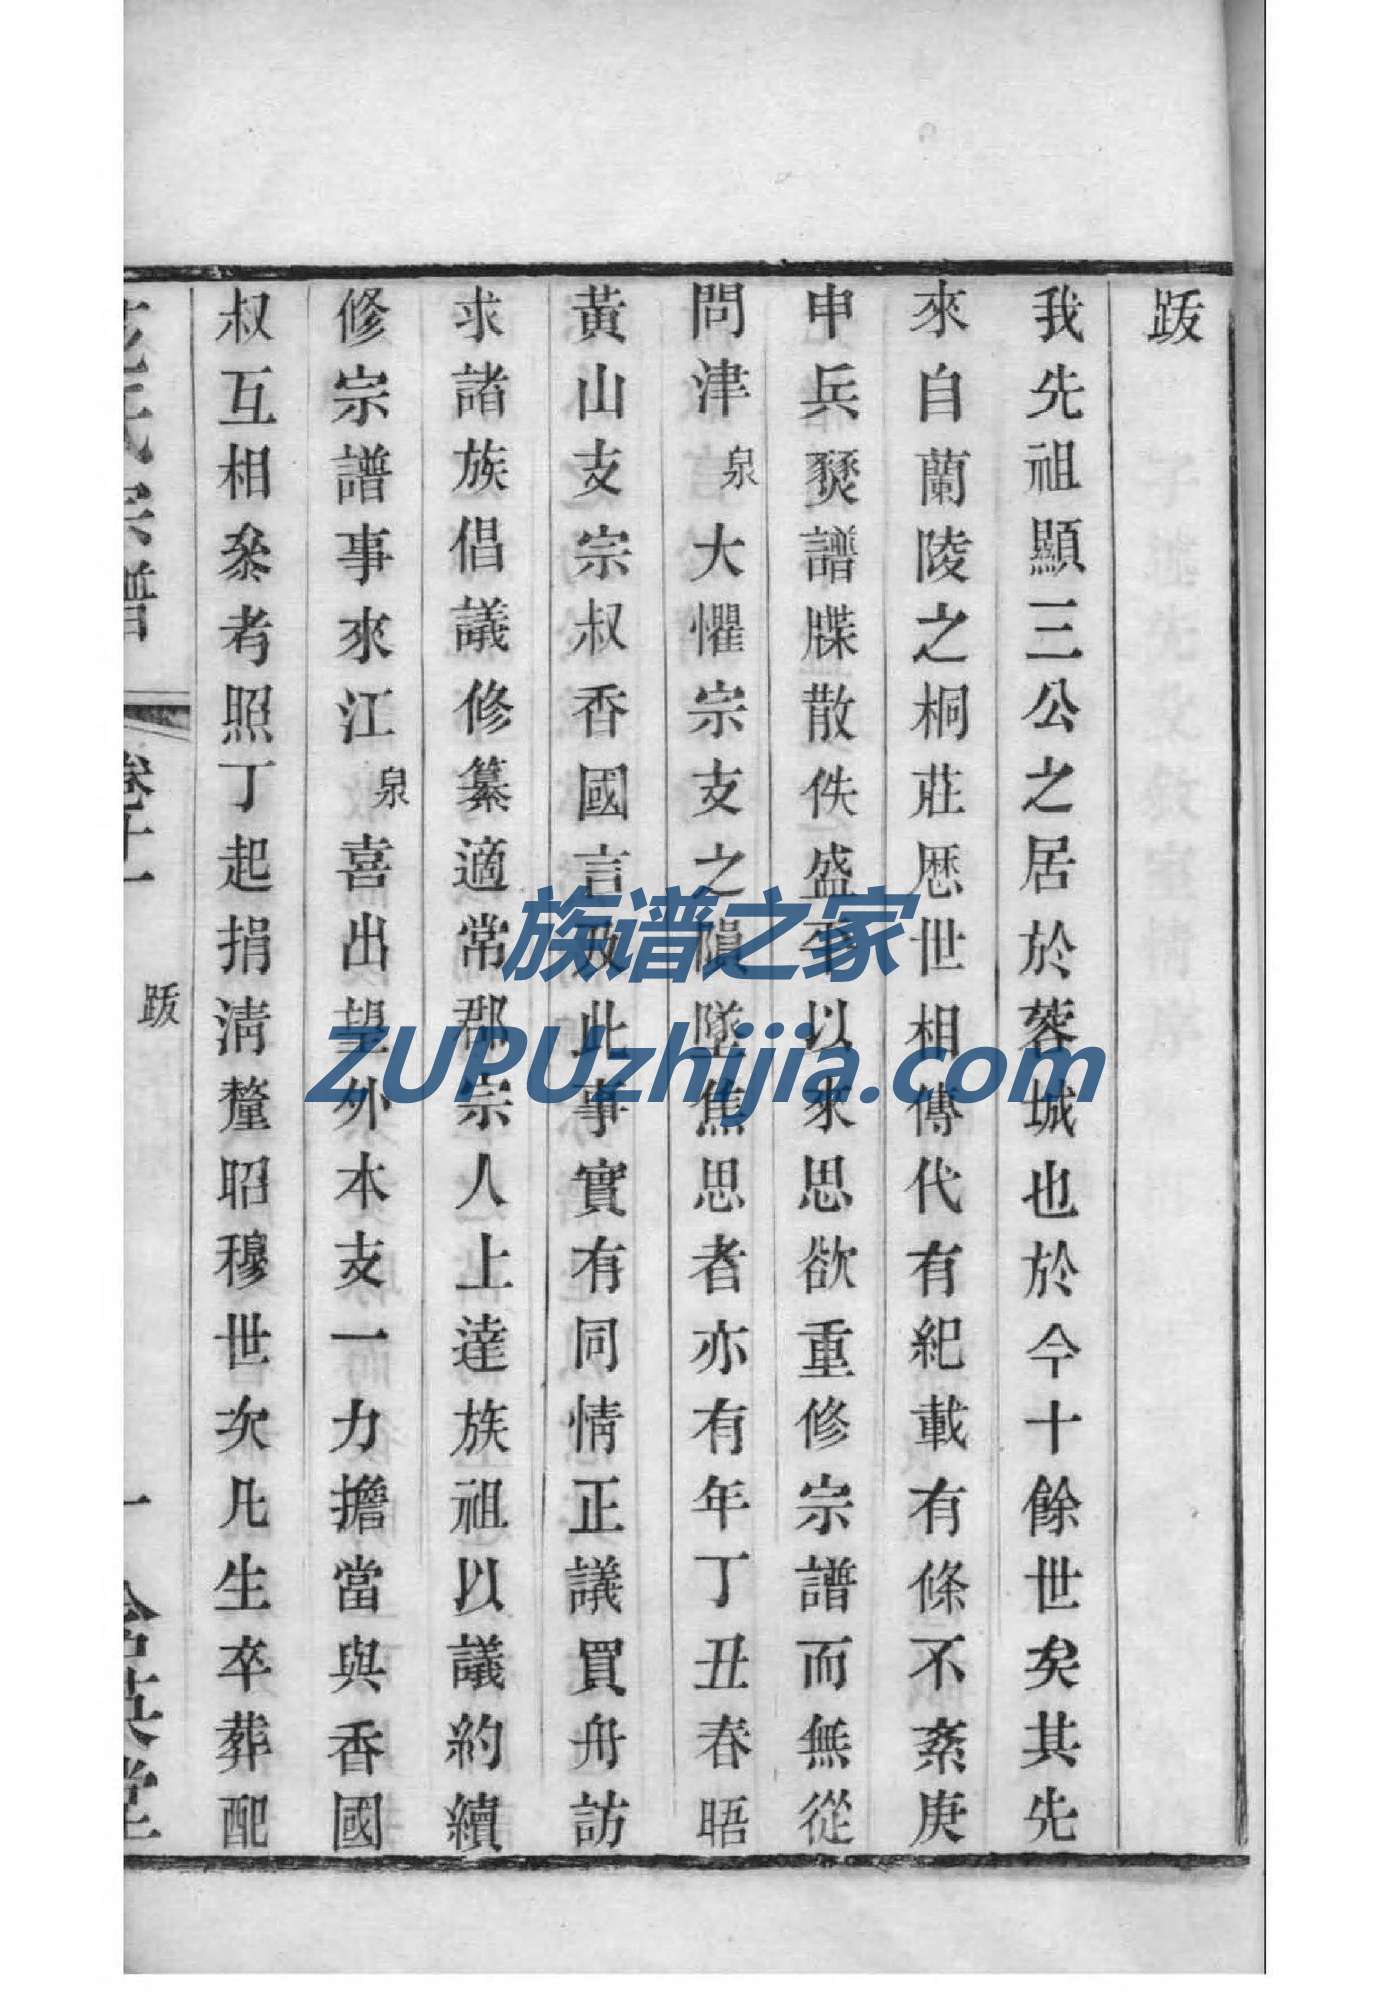 跋
我先祖顯三公之居於蓉城也於今十餘世矣其先
來自蘭陵之桐莊歷世相傳代有紀載有條不紊庚
申兵燹譜牒散佚盛平以來思欲重修宗譜而無從
問津泉大懼宗支之隕墜焦思者亦有年丁丑春晤
黃山支宗叔香國言及此事實有同情正議買舟訪
求諸族倡議修纂適常郡宗人上達族祖以議約續
修宗譜事來江泉喜出望外本支一力擔當與香國
叔互相叅考照丁起捐淸釐昭穆世次凡生卒葬配
氏宗譜
卷十一
跋
一
堂
族谱之家
ZUPUzhijia.com